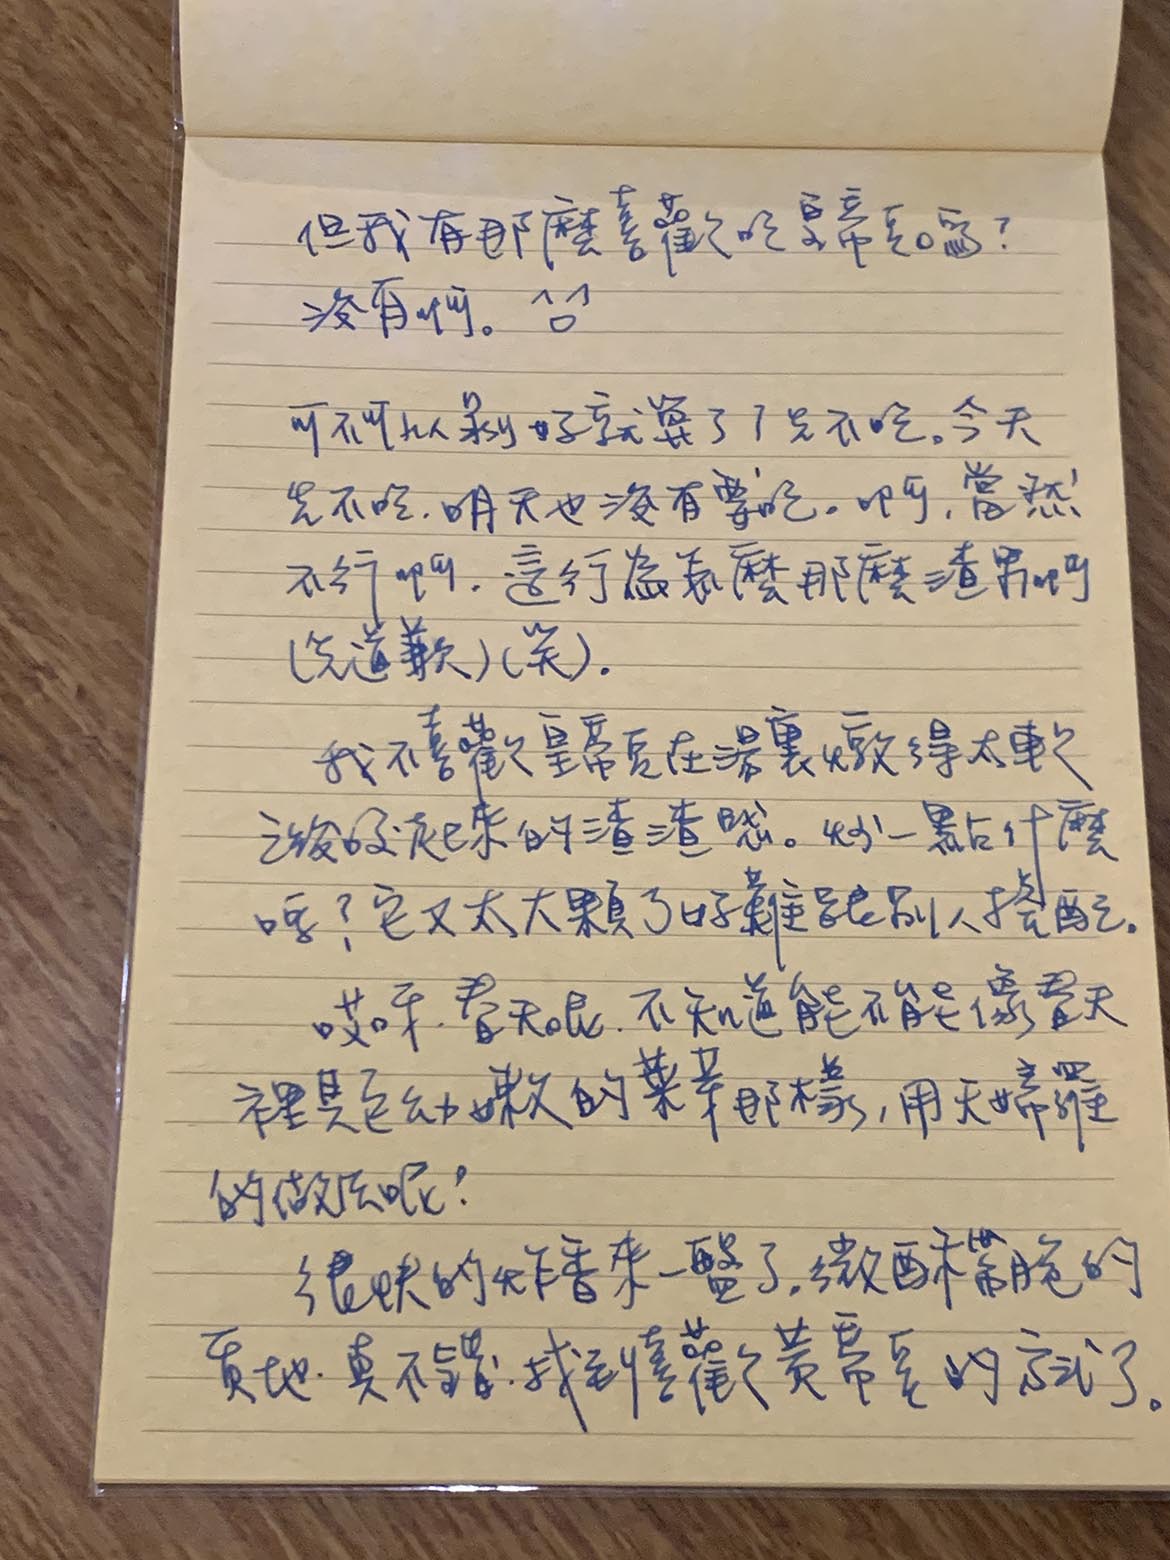 但我有那麼喜歡吃皇帝豆嗎？
沒有啊。
可不可以剝好就算了？先不吃。今天
先不吃．明天也沒有要吃。啊，當然
不行啊．這行為怎麼那麼渣男啊
（先道歉）（笑）．
我不喜歡皇帝豆在湯裏燉得太軟
之後咬起來的渣渣感。炒一點什麼
呢？它又太大顆了好難跟別人搭配。
哎呀．春天呢．不知道能不能像春天
裡其它幼嫩的葉芽那樣，用天婦羅
的做法呢？
很快的炸香來一盤了．微酥帶脆的
質地．真不錯．找到喜歡黃帝豆的方式了。